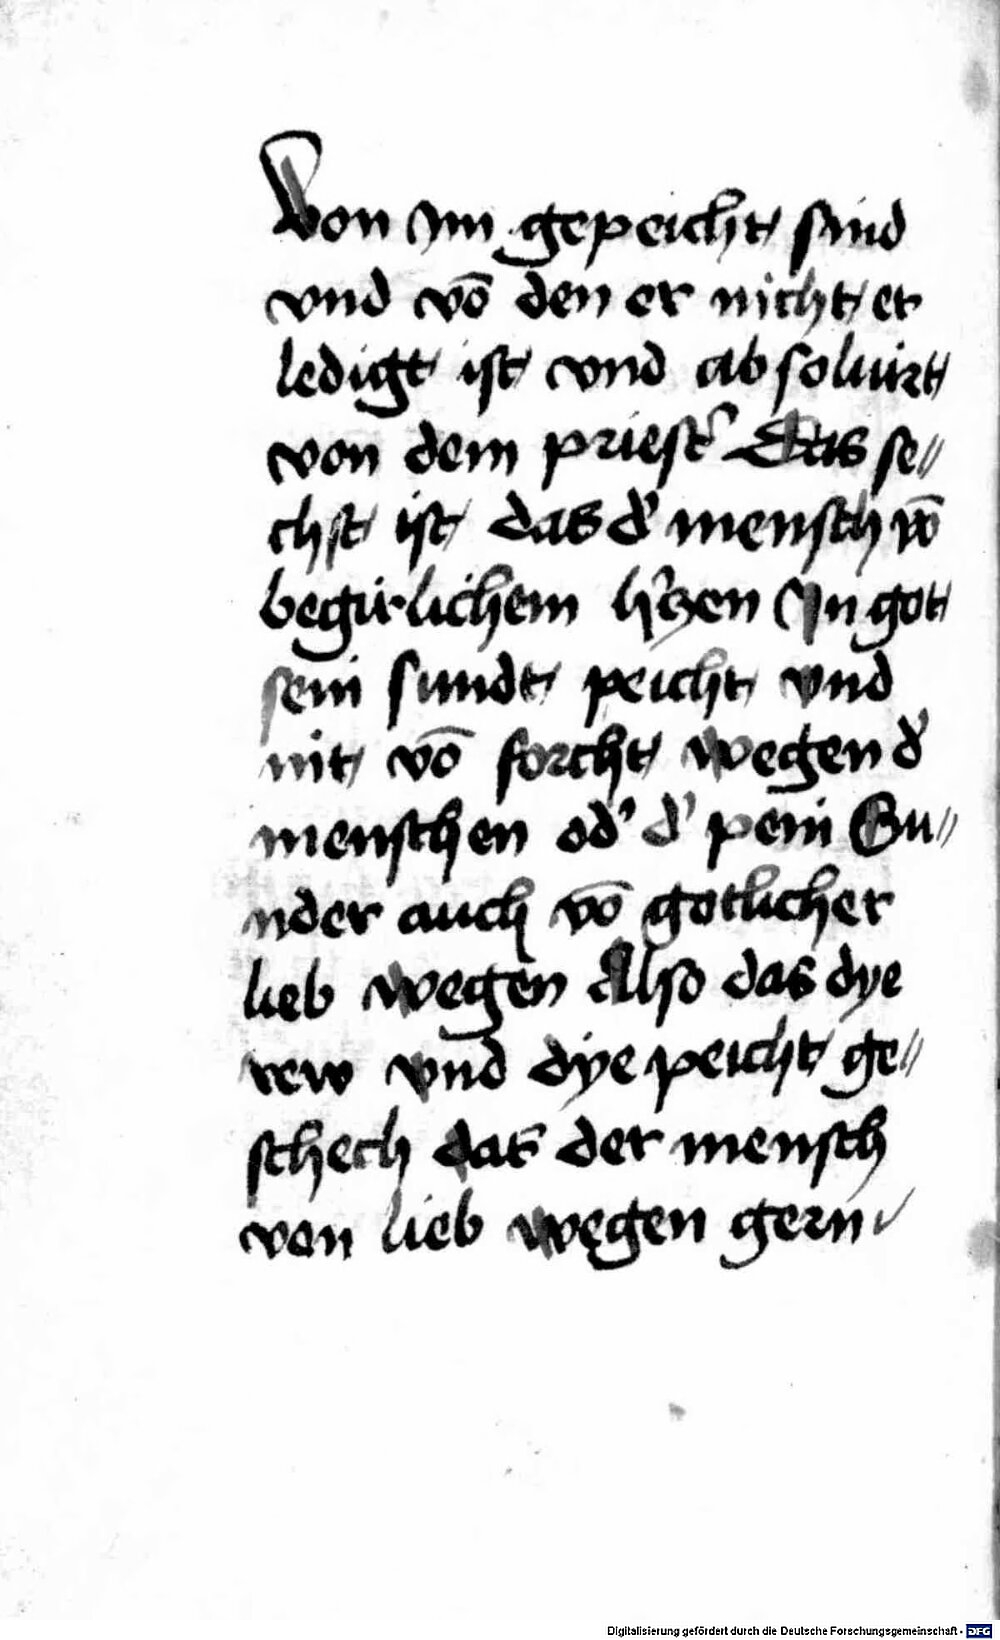 Von ym gepeicht sind
vnd vō den er nicht er
ledigt ist vnd absoluirt
von dem priest' Das se//
chst ist das d' mensch vō
begirlichem h'tzen Yn got
sein sundt peicht vnd
nit vō forcht wegen d'
menschen od' d' pein Su//
nder auch vō gotlicher
lieb wegen Also das dye
rew vnd dye peicht ge//
schech das der mensch
von lieb wegen gern
Digitalisierung gefördert durch die Deutsche Forschungsgemeinschaft - DFG